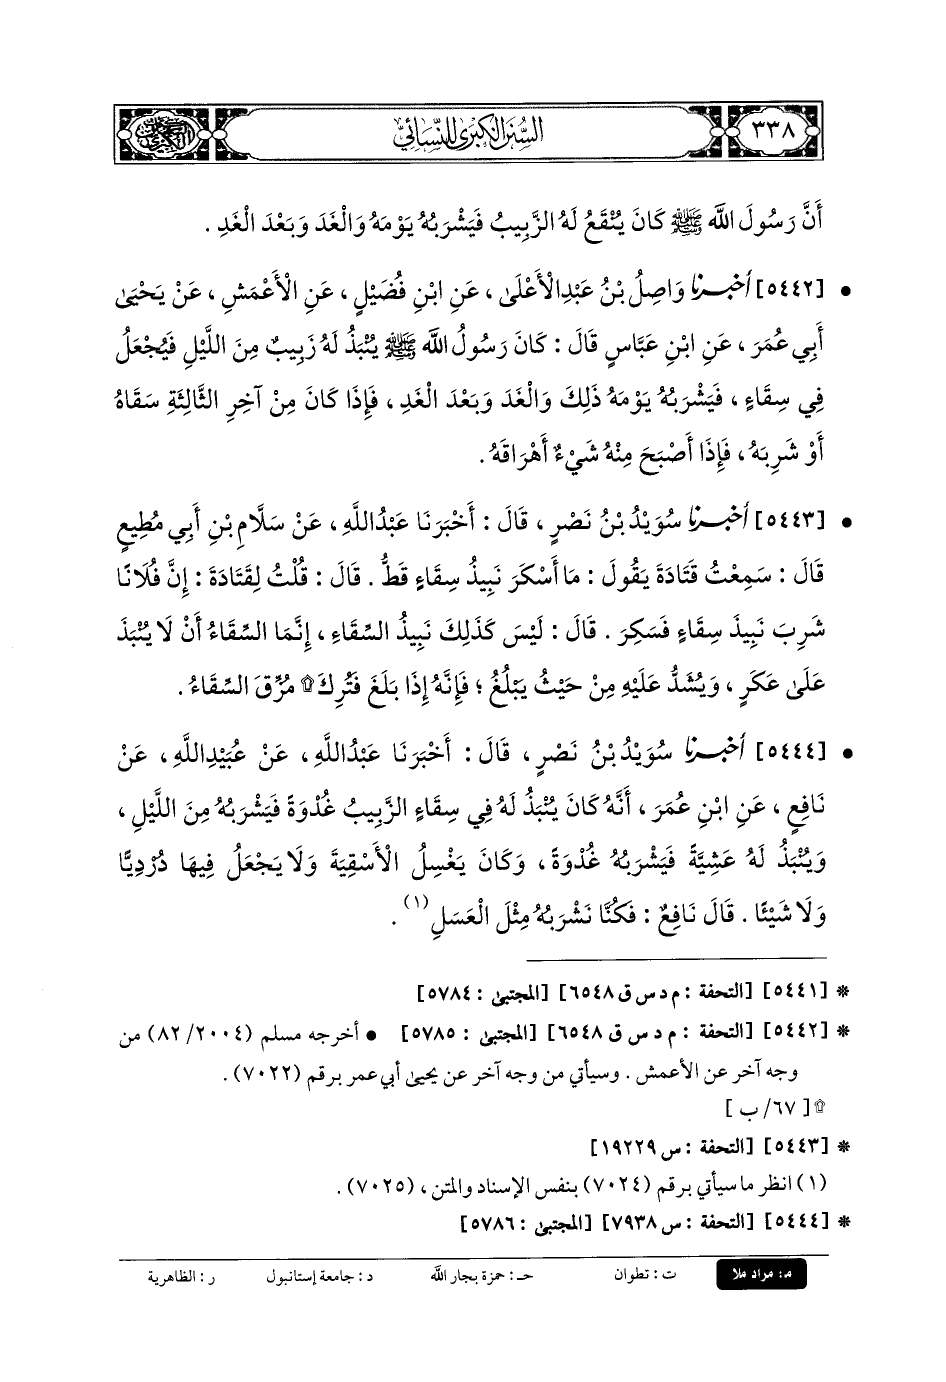 ٣٣٨
السُّنَنُ الكِبْرَى لِلنَّسَائِيِّ
أَنَّ رَسُولَ اللَّه ﷺ كَانَ يُنْقَعُ لَهُ الزَّبِيبُ فَيَشْرَبُهُ يَوْمَهُ وَالْغَدَ وَبَعْدَ الْغَدِ .
• [٥٤٤٢] أخبرنا وَاصِلُ بْنُ عَبْدِالْأَعْلَى ، عَنِ ابْنِ فُضَيْلٍ ، عَنِ الْأَعْمَشِ ، عَنْ يَحْيَىٰ
أَبِي عُمَرَ ، عَنِ ابْنِ عَبَّاسٍ قَالَ : كَانَ رَسُولُ اللَّه ﷺ يُنْبَذُ لَهُ زَبِيبٌ مِنَ اللَّيْلِ فَيُجْعَلُ
فِي سِقَاءٍ ، فَيَشْرَبُهُ يَوْمَهُ ذَلِكَ وَالْغَدَ وَبَعْدَ الْغَدِ ، فَإِذَا كَانَ مِنْ آخِرِ الثَّالِثَةِ سَقَاهُ
أَوْ شَرِبَهُ ، فَإِذَا أَصْبَحَ مِنْهُ شَيْءٌ أَهْرَاقَهُ .
• [٥٤٤٣] أخبرنا سُوَيْدُ بْنُ نَصْرٍ ، قَالَ : أَخْبَرَنَا عَبْدُاللَّهِ ، عَنْ سَلَّامِ بْنِ أَبِي مُطِيعٍ
قَالَ : سَمِعْتُ قَتَادَةَ يَقُولَ : مَا أَسْكَرَ نَبِيذُ سِقَاءٍ قَطُّ . قَالَ : قُلْتُ لِقَتَادَةَ : إِنَّ فُلَانًا
شَرِبَ نَبِيذَ سِقَاءٍ فَسَكِرَ . قَالَ : لَيْسَ كَذَلِكَ نَبِيذُ السِّقَاءِ ، إِنَّمَا السِّقَاءُ أَنْ لَا يُنْبَذَ
عَلَىٰ عَكَرٍ ، وَيُشَدُّ عَلَيْهِ مِنْ حَيْثُ يَبْلُغُ ؛ فَإِنَّهُ إِذَا بَلَغَ فَتُرِكَ۩ مُزِّقَ السِّقَاءُ .
• [٥٤٤٤] أخبرنا سُوَيْدُ بْنُ نَصْرٍ ، قَالَ : أَخْبَرَنَا عَبْدُاللَّهِ ، عَنْ عُبَيْدِاللَّهِ ، عَنْ
نَافِعٍ ، عَنِ ابْنِ عُمَرَ ، أَنَّهُ كَانَ يُنْبَذُ لَهُ فِي سِقَاءٍ الزَّبِيبُ غُدْوَةً فَيَشْرَبُهُ مِنَ اللَّيْلِ ،
وَيُنْبَذُ لَهُ عَشِيَّةً فَيَشْرَبُهُ غُدْوَةً ، وَكَانَ يَغْسِلُ الْأَسْقِيَةَ وَلَا يَجْعَلُ فِيهَا دُرْدِيًّا
وَلَا شَيْئًا . قَالَ نَافِعٌ : فَكُنَّا نَشْرَبُهُ مِثْلَ الْعَسَلِ (١) .
* [٥٤٤١] [التحفة : م د س ق ٦٥٤٨] [المجتبى : ٥٧٨٤]
* [٥٤٤٢] [التحفة : م د س ق ٦٥٤٨] [المجتبى : ٥٧٨٥] • أخرجه مسلم (٢٠٠٤/ ٨٢) من
وجه آخر عن الأعمش . وسيأتي من وجه آخر عن يحيى أبي عمر برقم (٧٠٢٢) .
۩ [ ٦٧/ ب ]
* [٥٤٤٣] [التحفة : س ١٩٢٢٩]
(١) انظر ما سيأتي برقم (٧٠٢٤) بنفس الإسناد والمتن ، (٧٠٢٥) .
* [٥٤٤٤] [التحفة : س ٧٩٣٨] [المجتبى : ٥٧٨٦]
م: مراد ملا ت : تطوان حـ : حمزة بجار الله د : جامعة إستانبول ر : الظاهرية